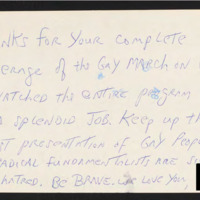 NKS FOR YOUR COMPLETE
ERAGE of the GAY MARCH ON
WATCHED the ENTIRE program
A SPLENDID JOB. Keep up th
ST PRESENTATION of GAY PEOP
RADICAL FUNDAMENTALISTS ARE S
HATRED. BE BRAVE. WE LOVE YOU,